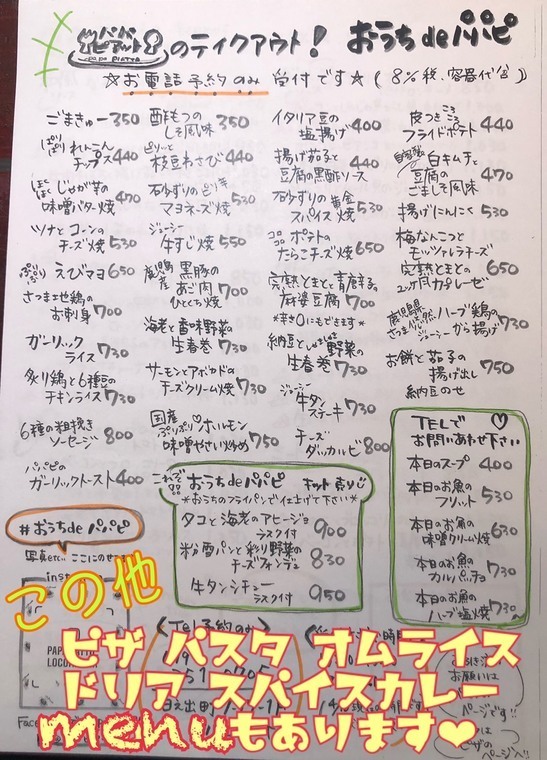 パパピアット のテイクアウト! おうち de パパピ
PAPA PIATTO
☆お電話予約のみ 受付です☆ (8%税、容器代含)
ごまきゅー 350
ぱりぱり れんこんチップス 440
ほくほく じゃが芋の味噌バター焼 470
ツナとコーンのチーズ焼 530
ぷりぷり えびマヨ 650
さつま地鶏のお刺身 700
ガーリックライス 730
炙り鶏と6種豆のチキンライス 730
6種の粗挽きソーセージ 800
パパピのガーリックトースト 400
酢もつのしそ風味 350
ぴりっと枝豆わさび 440
砂ずりのピリ辛マヨネーズ焼 530
ジューシー牛すじ焼 550
鹿児島産 黒豚のあご肉ひとくち焼 700
海老と香味野菜の生春巻 730
サーモンとアボカドのチーズクリーム焼 730
国産ぷりぷり♡ホルモン味噌やさい炒め 750
イタリア豆の塩揚げ 400
揚げ茄子と豆腐の黒酢ソース 440
砂ずりの黄金スパイス焼 530
コロコロポテトのたらこチーズ焼 650
完熟とまとと青唐辛子の麻婆豆腐 700
*辛さ0にもできます*
納豆としゃきしゃき野菜の生春巻 730
ジューシー牛タンステーキ 730
チーズダッカルビ 800
皮つきころころフライドポテト 440
自家製白キムチと豆腐のごましそ風味 470
揚げにんにく 530
梅なんこつとモッツァレラチーズ
完熟とまとの カプレーゼ 650
鹿児島県 ハーブ鶏のジューシーから揚げ 730
お餅と茄子の揚げ出し 750
納豆のせ
おうち de パパピ キット売り
*おうちのフライパンで仕上げて下さい*
タコと海老のアヒージョ 900
ラスク付
粉雪パンと彩り野菜のチーズフォンデュ 830
牛タンシチュー 950
ラスク付
TELで♡
お問いあわせ下さい
本日のスープ 400
本日のお魚のフリット 530
本日のお魚の味噌クリーム焼 630
本日のお魚のカルパッチョ 730
本日のお魚のハーブ塩焼 730
#おうちde パパピ
写真etc.. ここにのせ
この他
<Tel予約のみ>
ピザ パスタ オムライス
ドリア スパイスカレー
menuもあります❤